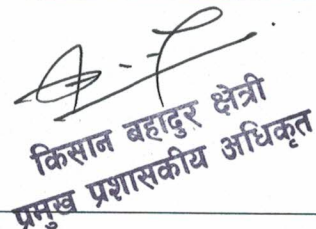 किसान बहादुर क्षेत्री
प्रमुख प्रशासकीय अधिकृत